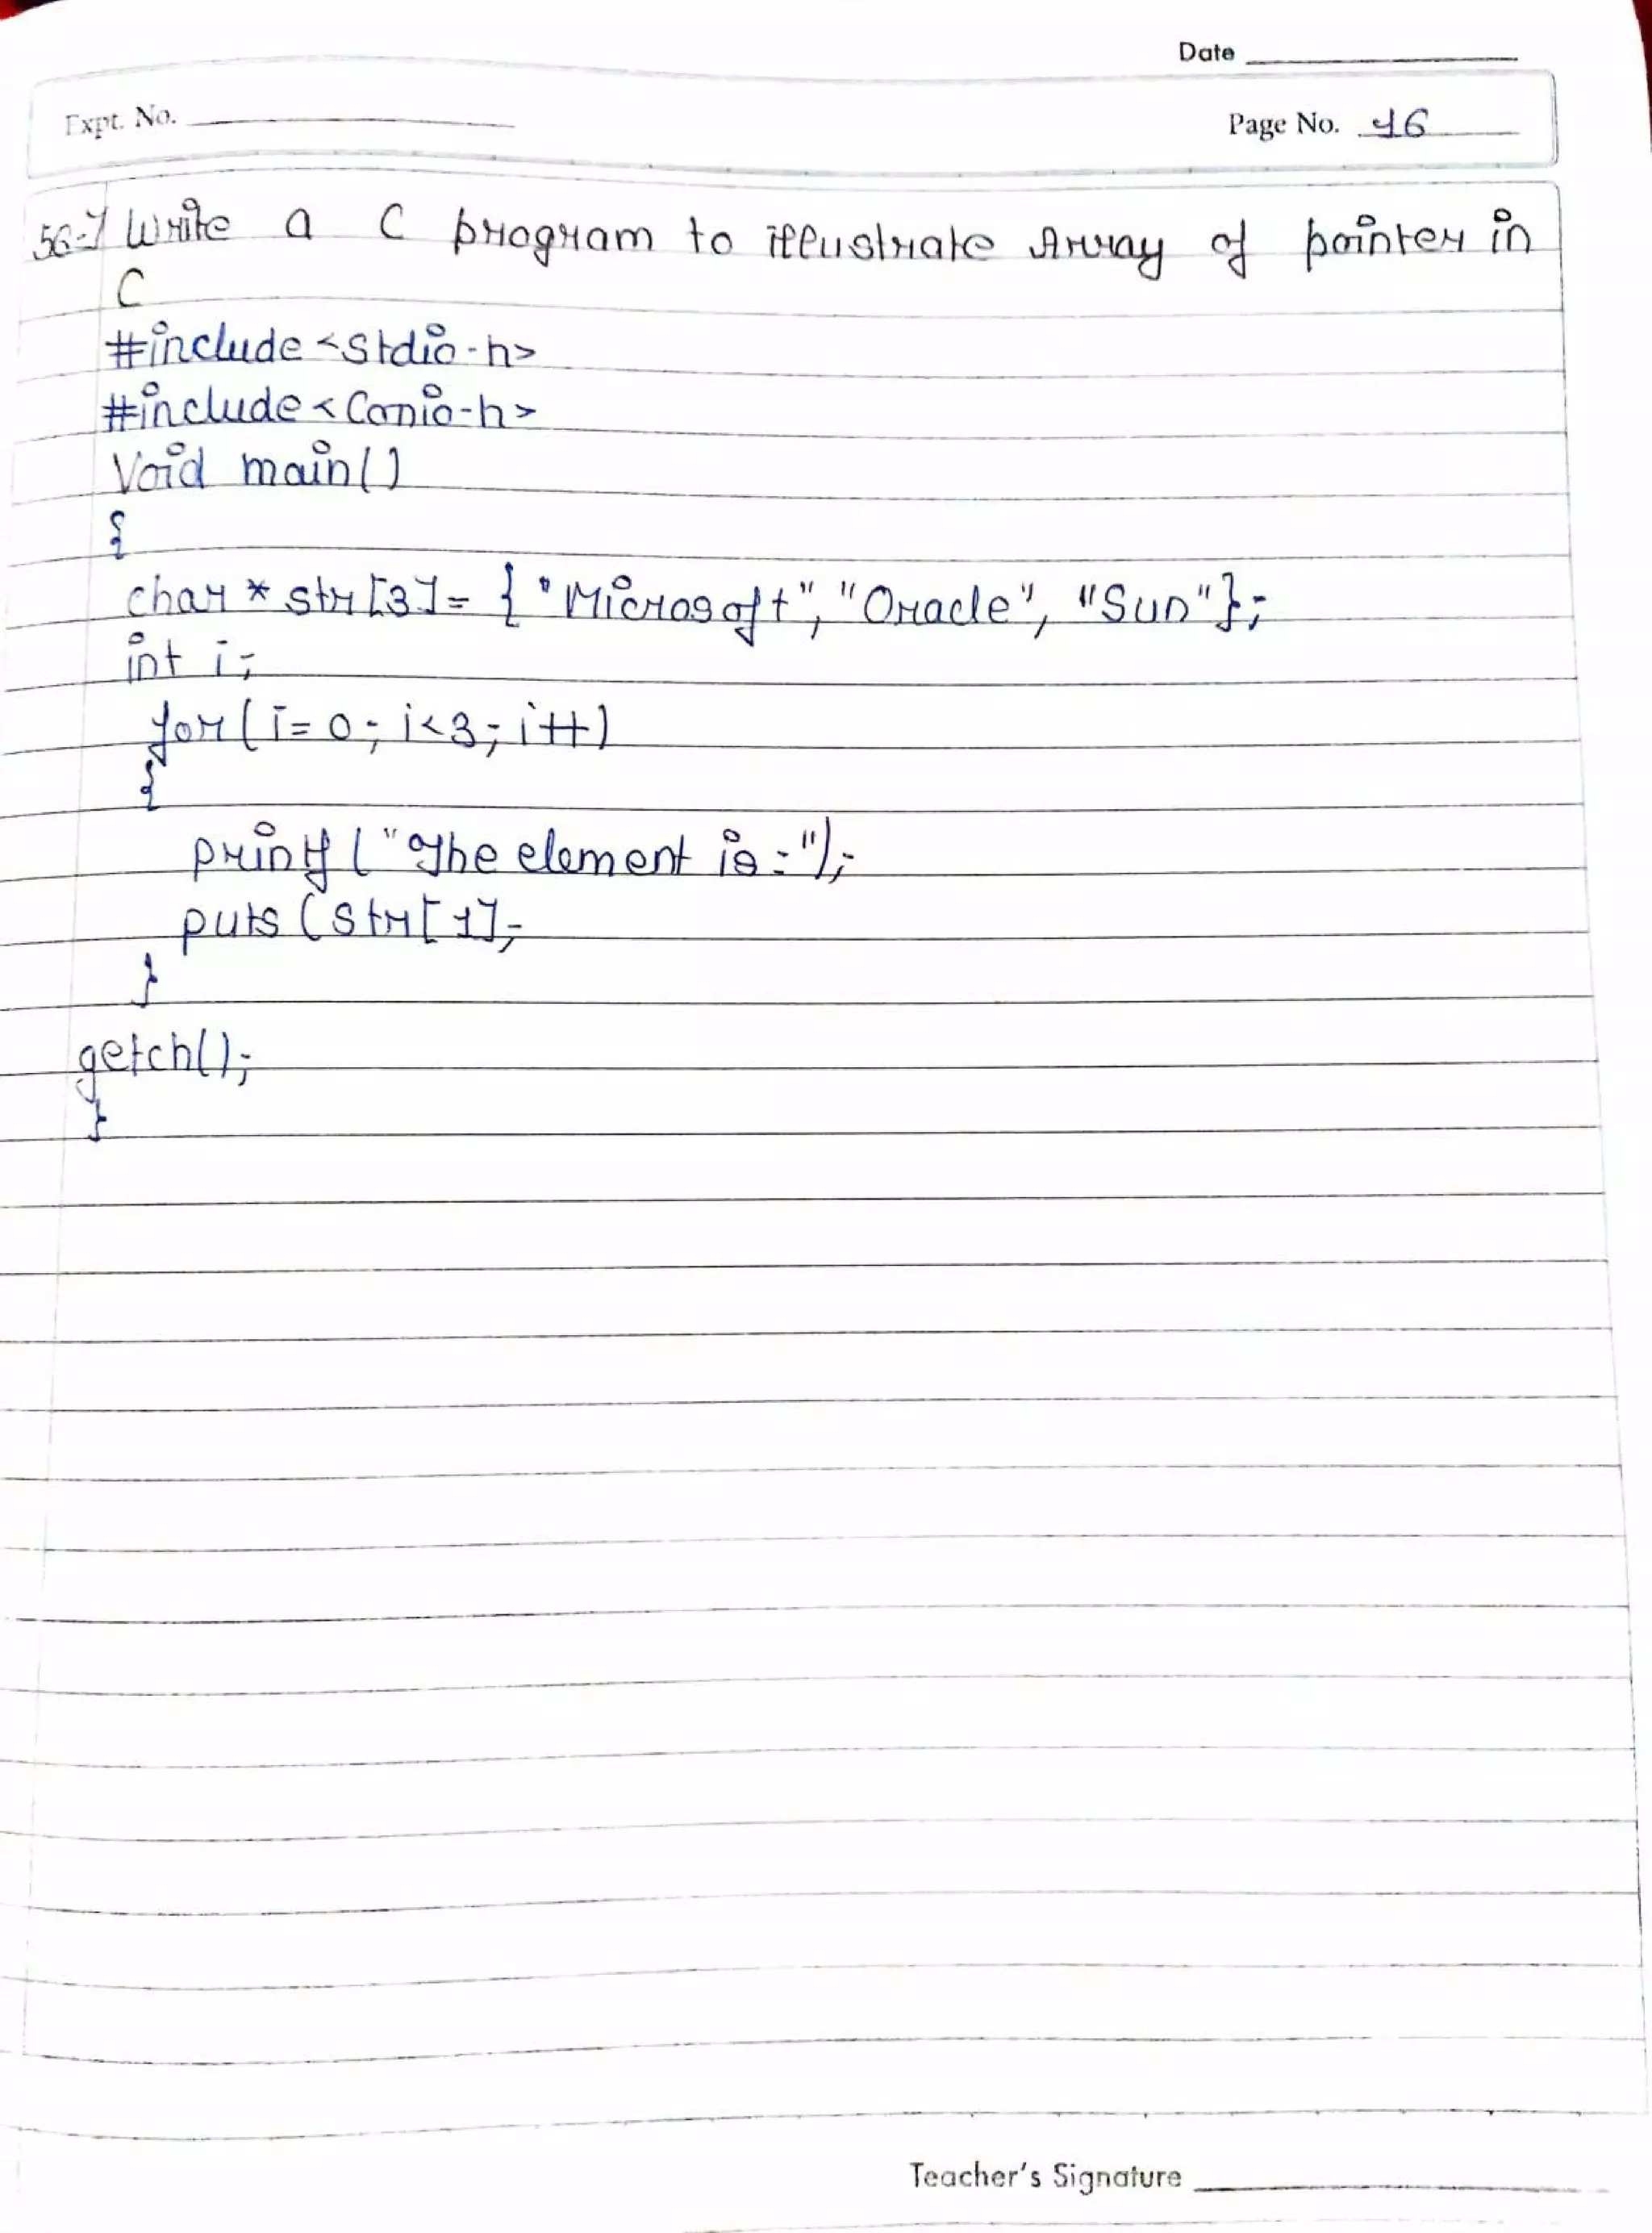 Date
Expt. No.
Page No. 46
56-] Write a C program to illustrate Array of pointer in
C
#include <stdio.h>
#include <Conio.h>
Void main()
{
char * str[3] = { "Microsoft", "Oracle", "Sun"};
int i;
for(i=0; i<3; i++)
{
printf("The element is:");
puts (str[1];
}
getch();
}
Teacher's Signature